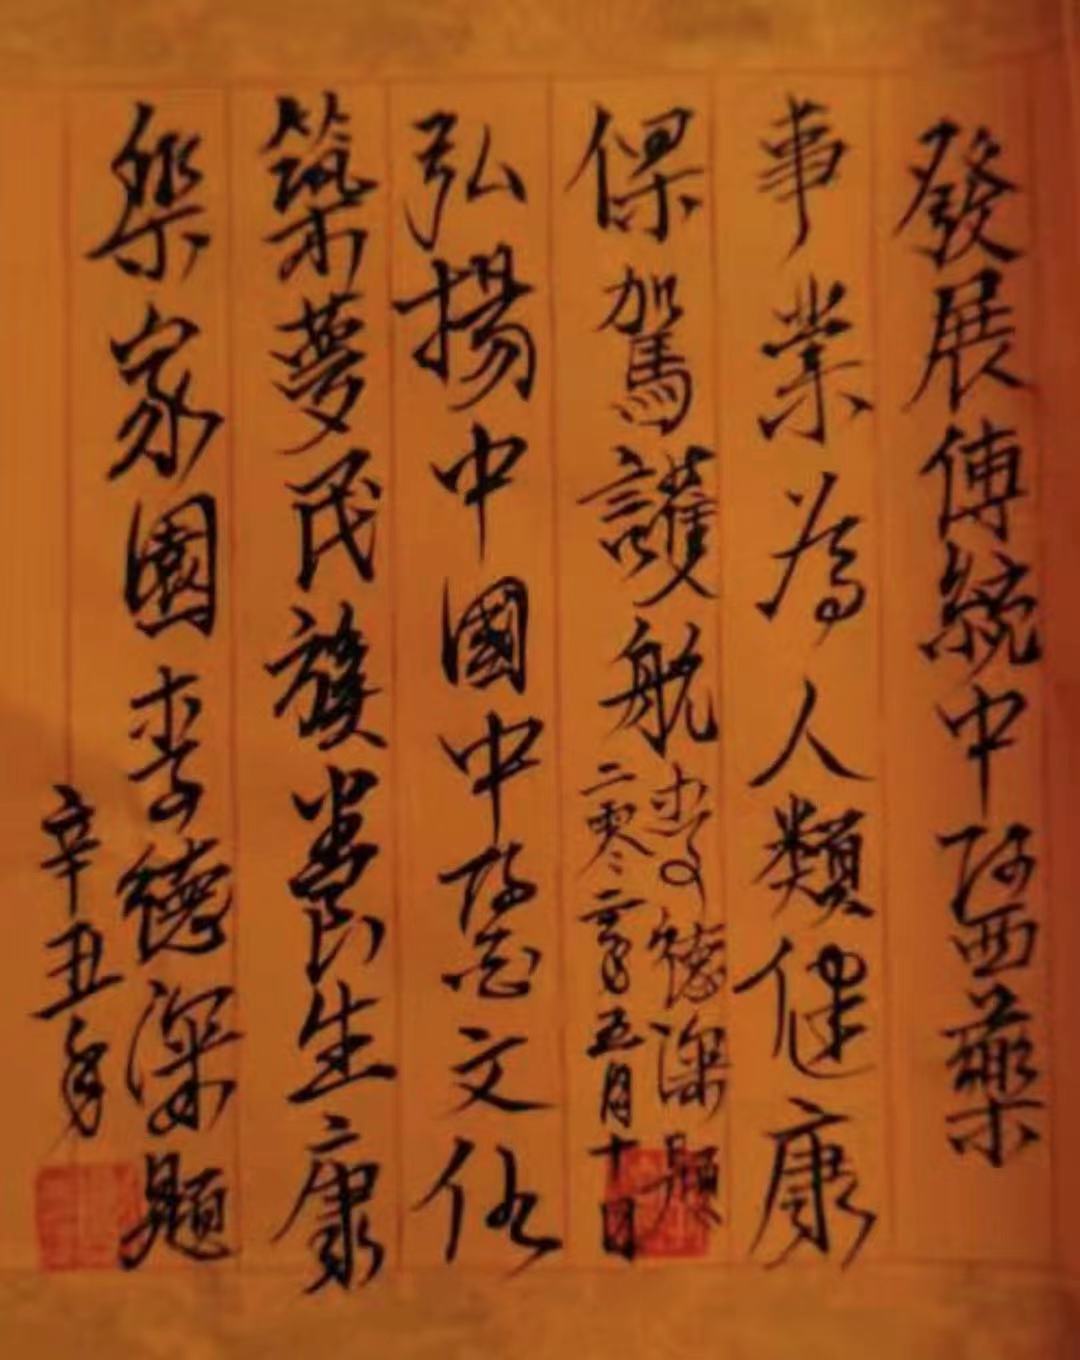 發展傳統中醫藥
事業為人類健康
保駕護航
李德深題
二零二一年五月十日
弘揚中國中醫文化
築夢民族養生康
樂家園李德深題
辛丑年